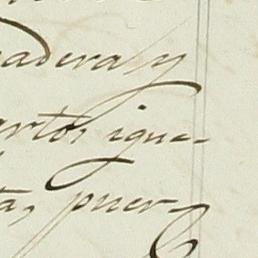 adera y
artos igua-
tas puer-